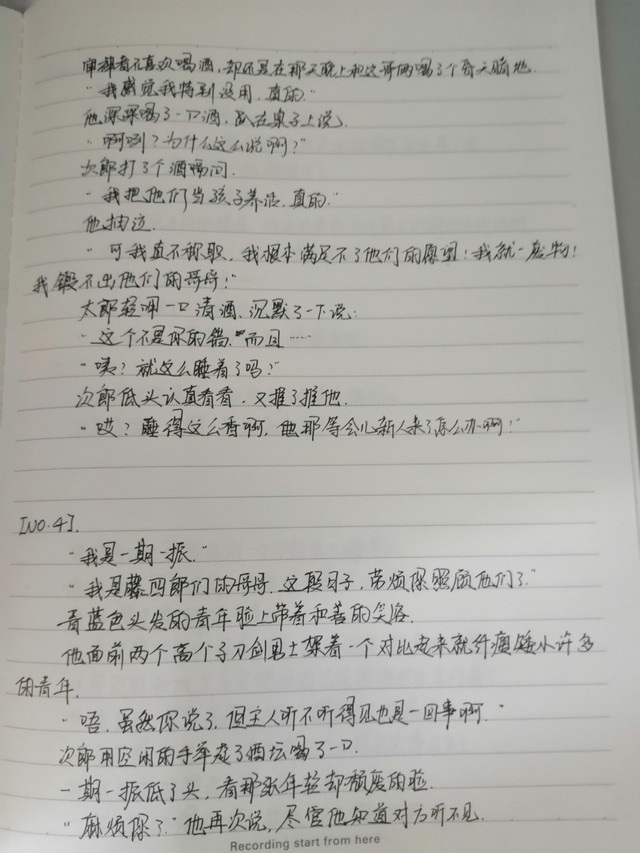 审神者不喜欢喝酒,却还是在那天晚上和这哥俩喝了个昏天暗地.
“我感觉我特别没用,真的.”
他深深喝了一口酒,趴在桌子上说.
“啊咧?为什么这么说啊?”
次郎打了个酒嗝问.
“我把他们当孩子养活,真的.”
他抽泣.
“可我真不称职,我根本满足不了他们的愿望!我就一废物!
我锻不出他们的哥哥!”
太郎轻啜一口清酒,沉默了一下说:
“这个不是你的错.”而且……
“咦?就这么睡着了吗?”
次郎低头认真看看,又推了推他.
“哎?睡得这么香啊,那等会儿新人来了怎么办啊!”
[NO.4].
“我是一期一振.”
“我是藤四郎们的哥哥.这段日子,劳烦您照顾他们了.”
青蓝色头发的青年脸上带着和善的笑容.
他面前两个高个子刀剑男士架着一个对比起来就纤瘦矮小许多
的青年.
“唔,虽然你说了,但主人听不听得见也是一回事啊.”
次郎用空闲的手举起了酒坛喝了一口.
一期一振低了头,看那张年轻却颓废的脸.
“麻烦您了.”他再次说,尽管他知道对方听不见.
Recording start from here